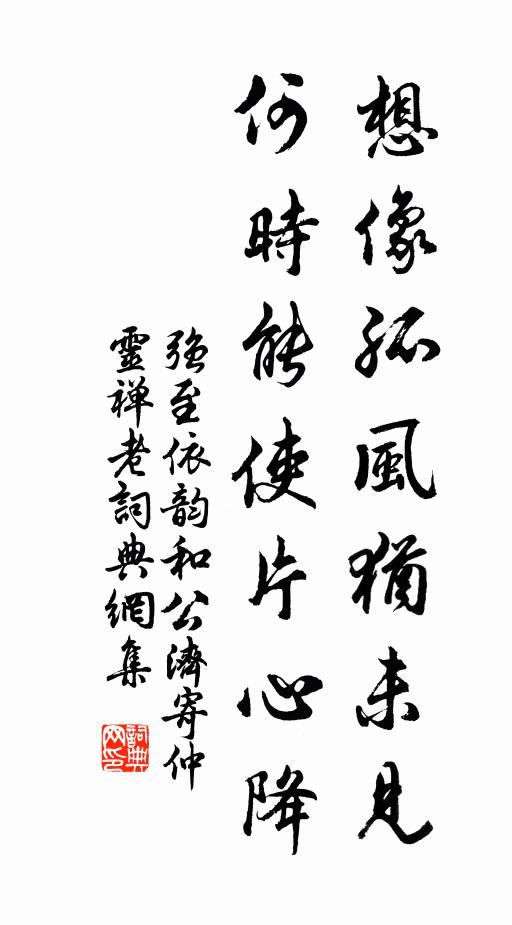 想像孤風猶未見
何時能使片心降
強至依韵和公濟寄仲
靈禅老詞典網集
詞典网印